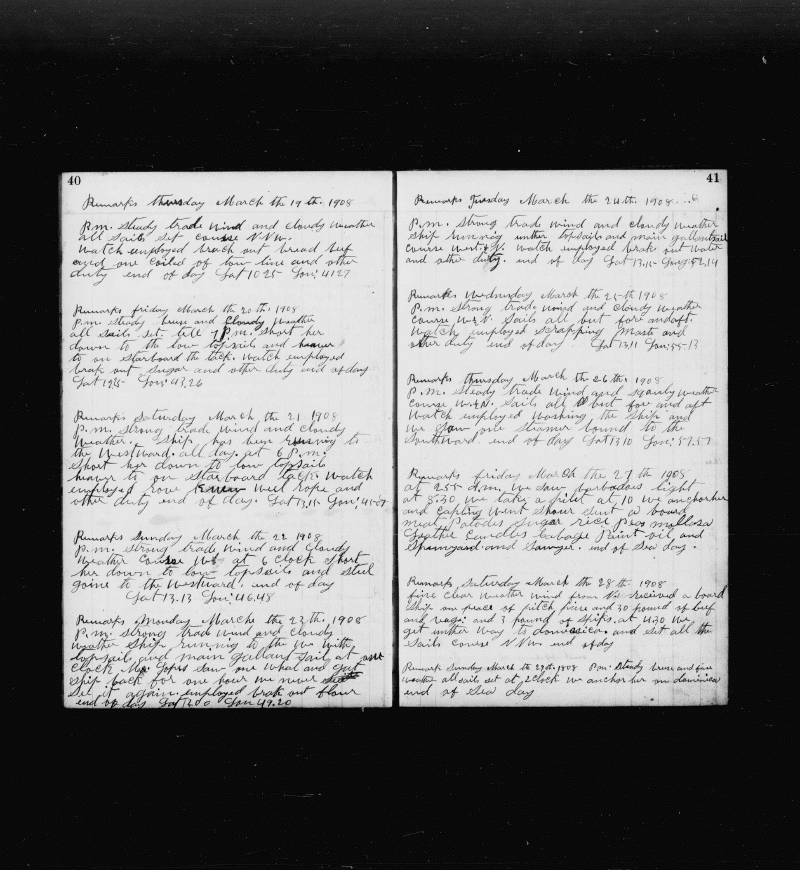 40
Remarks thursday March the 19th. 1908
P.m. Steady trade wind and cloudy weather
all sails set course NNW.
Watch employed brack out bread beef
and one coiled of tow line and other
duty end of day Lat 10 25 Lon: 41 27
Remarks friday March the 20th. 1908
P.m. Steady breeze and cloudy weather
all sails set till 7 P.m. Short her
down to the low topsails and heaver
to on Starboard the tack. Watch employed
brak out Sugar and other duty end of day
Lat Lon: 43.26
Remarks Saturday March the 21 1908
P.m. Strong trade wind and Cloudy
Weather. Ship has been running to
the Westward. all day. at 6 P.m.
Short her down to low topsails
heaver to on Starboard tack. Watch
employed rope and
other duty end of day. Lat 13.15 Lon:
Remarks Sunday March the 22 1908
P.m. strong trade wind and cloudy
Weather Course at 6 Clock Short
her down to low topsails and still
goine to the Westward. end of day
Lat 13.13 Lon: 46.48
Remarks Monday Marche the 23th. 1908
P.m. strong trade wind and cloudy
weather Ship running to the W. with
topsail and main galland Sail at
clock Mr saw one whal and
Ship back for one hour we never
See it again. employed brak out flour
end of day Lat Lon 49.20
41
Remarks Tuesday March the 24th. 1908
P.m. Strong trade wind and cloudy weather
Ship running unther topsails and main gallantsail
Course Watch employed brak out Water
and other duty. end of day Lat 13.15 Long: 52.14
Remarks Wednesday March the 25th 1908
P.m. Strong trade wind and cloudy weather
Course Sails all but fore and aft
Watch employed Scrapping Mast and
other duty end of day. Lat 13.11 Lon: 55-13
Remarks thursday March the 26th. 1908
P.m. Steady trade Wind and Squaly weather
Course Sails all but fore and aft
Watch employed Washing the Ship and
we Saw one Steamer bound to the
Southward. end of day Lat 13 10 Lon: 57.57
Remarks friday March the 27th 1908
at 2.55 A.m. We Saw barbadoes light
at 8.30 we take a pilet at 10 we anchor her
and Capting Went Shour Sent a board
meal Patodes Sugar rice Mollssa
Leathe Candles Cabage Paint oil, and
Spunyard and end of Sea day.
Remarks Saturday March the 28th 1908
fine clear weather wind from received a board
Ship one peace of pitch pine and 30 pound of beef
and and 3 pound of at 4.30 We
get unther way to domineica. and Set all the
Sails course NNW. end of day
Remarks Sunday March the 29th. 1908 P.m. Steady breeze and fine
weather all sails set at 2 clock we anchor her on dominica
end of Sea day